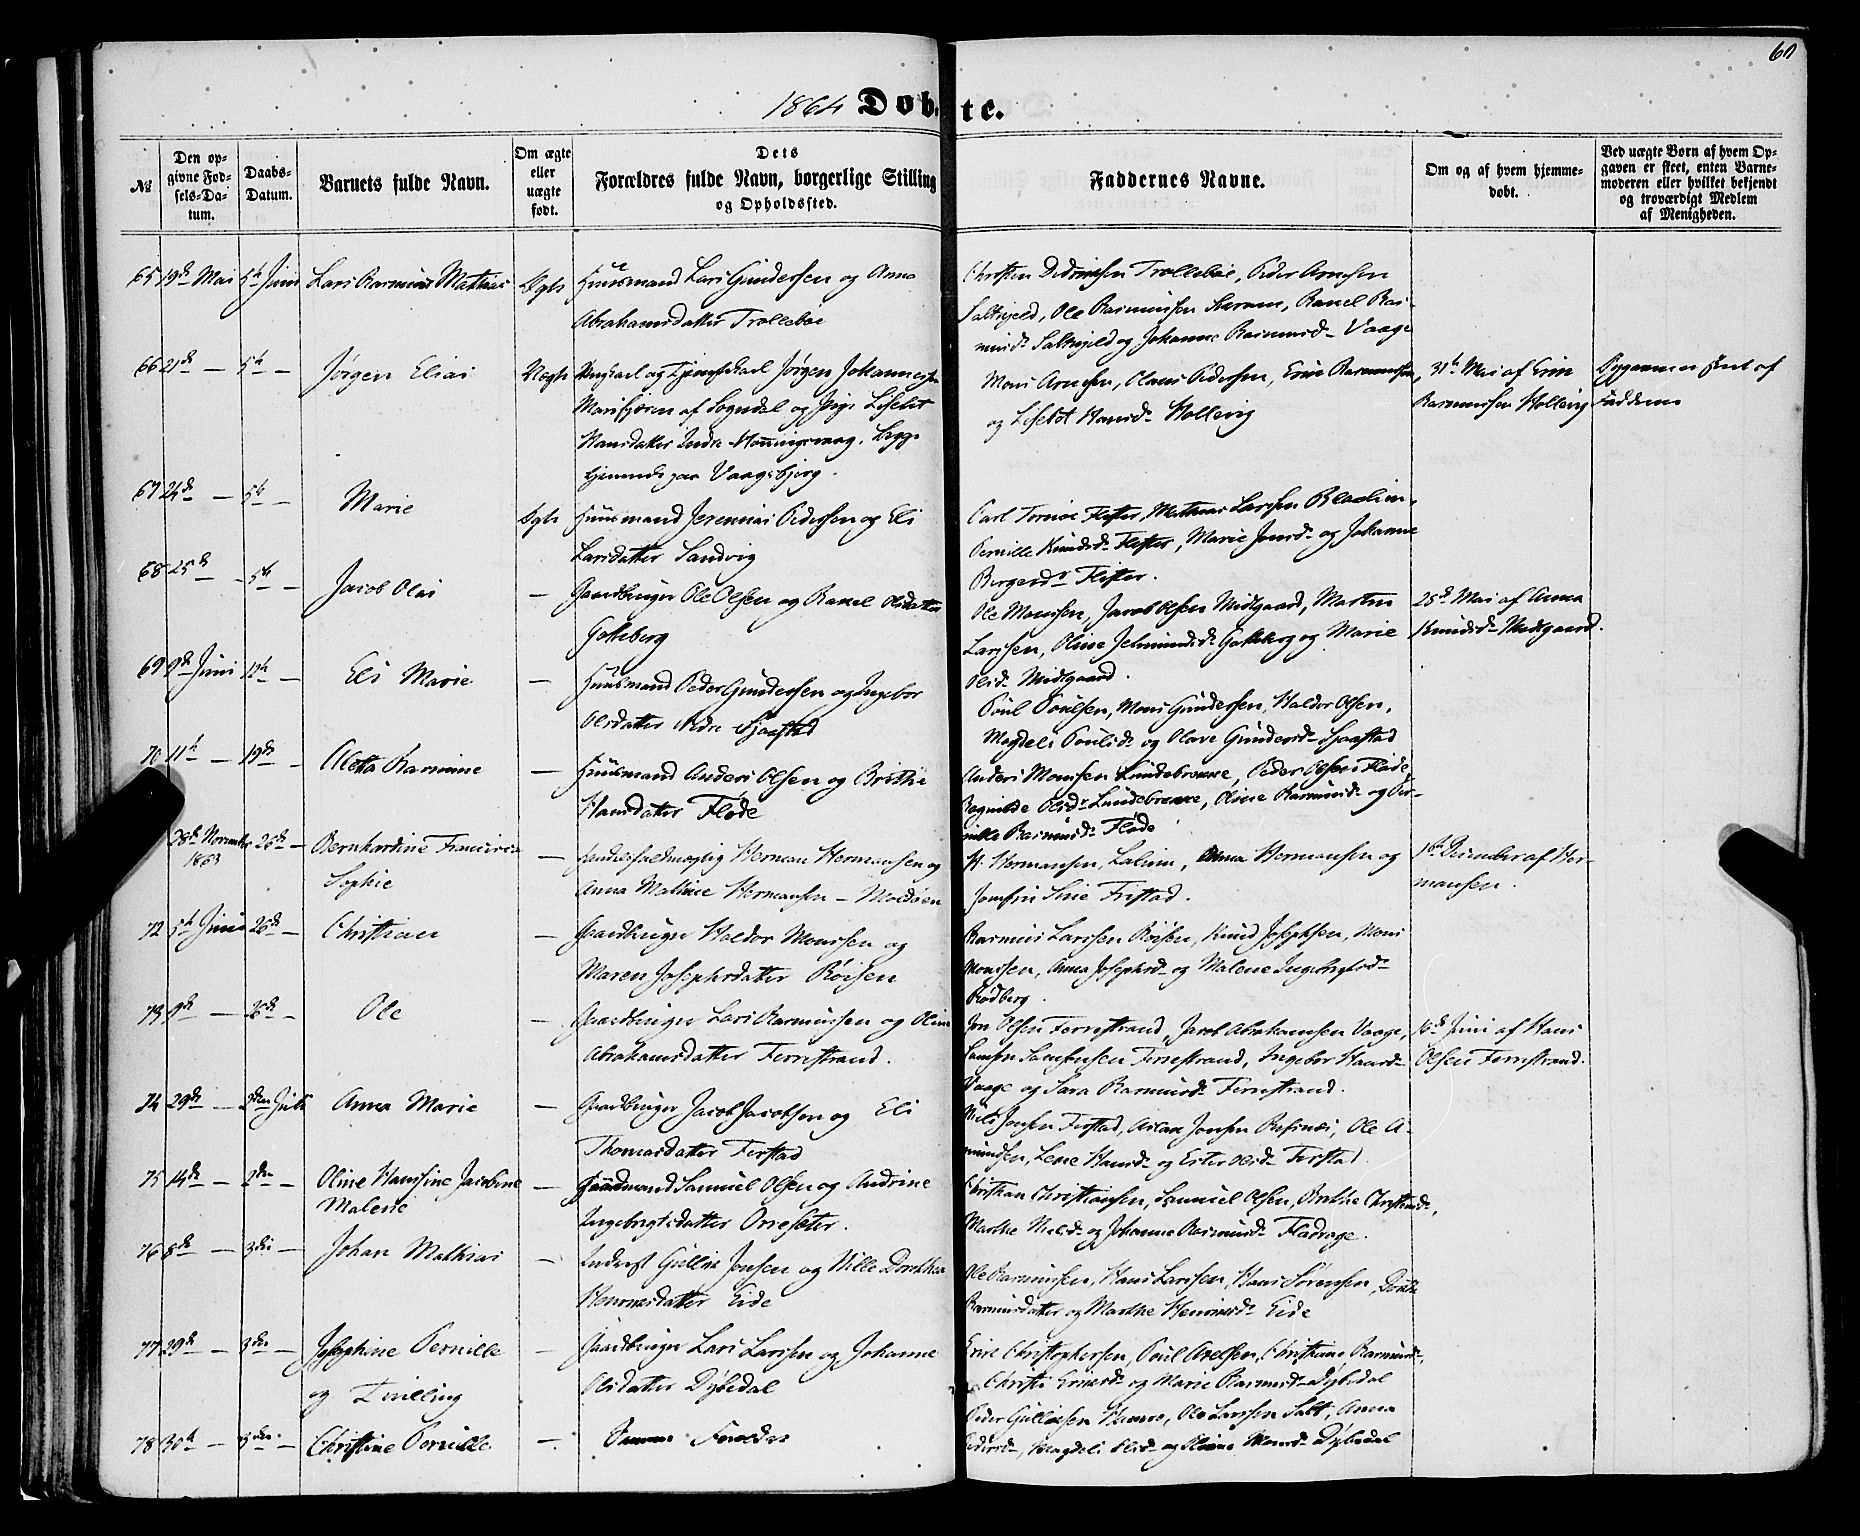 60
1864 Døbte.
№
Den op-
givne Fød-
sels-Da-
tum.
Daabs-
Datum.
Barnets fulde Navn.
Om ægte
eller
uægte
født.
Dets
Forældres fulde Navn, borgerlige Stilling
og Opholdssted.
Faddernes Navne.
Om og af hvem hjemme-
døbt.
Ved uægte Børn af hvem Op-
gaven er skeet, enten Barne-
moderen eller hvilket bekjendt
og troværdigt Medlem
af Menigheden.
65 19de Mai 5te Juni Lars Rasmus Mathias Ægte Huusmand Lars Gundersen og Anna
Abrahamsdatter Trollebøe
Christen Didriksen Trollebøe, Peder Arnesen
Saltskjeld, Ole Rasmussen, Rakel Ras-
musd. Saltskjeld og Johanne Rasmusd. Vaage
66 21de — 5te — Jørgen Elias Uægte Ungkarl og Tjenestekarl Jørgen Johannessen
Marifjæren af Sogndal og Pige Lisebet
Hansdatter Indre Honningsvaag. Begge
hjemme paa Vaagsbjerg.
Mons Arnesen, Claus Pedersen, Erik Rasmussen,
og Lisebet Hansd. Hollevig
31te Mai af Erik
Rasmussen Hollevig
Opgaven skeet af
Fadderne
67 24de — 5te — Marie Ægte Huusmand Jeremias Pedersen og Eli
Larsdatter Sandvig
Carl Tornøe Flister, Mathias Larssen Blaalien,
Pernille Knudsd. Flister, Marie Jonsd. og Johanne
Bergersd. Flister.
68 25de — 5te — Jacob Olai — Gaardbruger Ole Olsen og Rakel Olsdatter
Gotteberg
Ole Monssen, Jacob Olsen Midtgaard, Martin
Larssen, Oline Jelmundsd. Gotteberg og Marie
Olsd. Midtgaard.
25de Mai af Anna
Knudsd. Midtgaard.
69 9de Juni 12te — Eli Marie — Huusmand Peder Gundersen og Ingebor
Olsdatter Nedre Sjaastad
Poul Poulsen, Mons Gundersen, Haldor Olsen,
Magdeli Poulsd. og Olave Gundersd. Sjaastad
70 11te — 19de — Aletta Rasmine — Huusmand Anders Olsen og Brithe
Hansdatter Fløde
Anders Monssen Lundebrekke, Peder Olsen Fløde,
Ragnilde Olsd. Lundebrekke, Oline Rasmusd. og Per-
nille Rasmusd. Fløde
28de November 1863 26de — Bernhardine Francisca
Sophie — Herman Hermansen og
Anna Mathine Hermansen — Moldøen
H. Hermansen, Anna Hermansen og
Jomfru Sine Fristad.
1ste December af Her-
mansen.
72 5te Juni 26de — Christian — Gaardbruger Haldor Monssen og
Maren Josephsdatter Røisen
Rasmus Larssen Røisen, Knud Josephsen, Mons
Monssen, Anna Josephsd. og Malene Ingebrigtsd.
Rødberg.
73 9de — 26de — Ole — Gaardbruger Lars Rasmussen og Oline
Abrahamsdatter Ferrestrand.
Jon Olsen Ferrestrand, Jacob Abrahamsen Vaage,
Samson Samsonsen Ferrestrand, Ingebor Haavd.
Vaage og Sara Rasmusd. Ferrestrand.
16de Juni af Hans
Olsen Ferrestrand.
74 29de — 3die Juli Anna Marie — Gaardbruger Jacob Jacobsen og Eli
Thomasdatter Ferstad
Nils Jonsen Ferstad, Aslak Jonsen Refsnæs, Ole A-
mundsen, Lene Hansd. og Ester Olsd. Ferstad.
75 14de — 3die — Oline Hansine Jacobine
Malene — Gaardmand Samuel Olsen og Andrine
Ingebrigtsdatter Ørresæter.
Christian Christiansen, Samuel Olsen, Brithe Christensd.,
Marthe Nielsd. og Johanne Rasmusd. Flødvage.
76 8de — 3die — Johan Mathias — Inderst Gullik Jonsen og Nille Dorthea
Henriksdatter Eide
Ole Rasmussen, Hans Larssen, Hans Sørensen, Dorthe
Rasmusdatter og Marthe Henriksd. Eide
77 29de — 3die — Josephine Pernille
og Tvilling — Gaardbruger Lars Larssen og Johanne
Olsdatter Dybedal
Erik Christophersen, Poul Axelsen, Christiane Rasmusd.,
Christi Ernsd. og Marie Rasmusd. Dybedal
78 30te — 3die — Christine Pernille — Samme Forældre
Peder Gulliksen Hamre, Ole Larssen Salt, Anna
Pedersd., Magdeli Olsd. og Oline Monsd. Dybedal